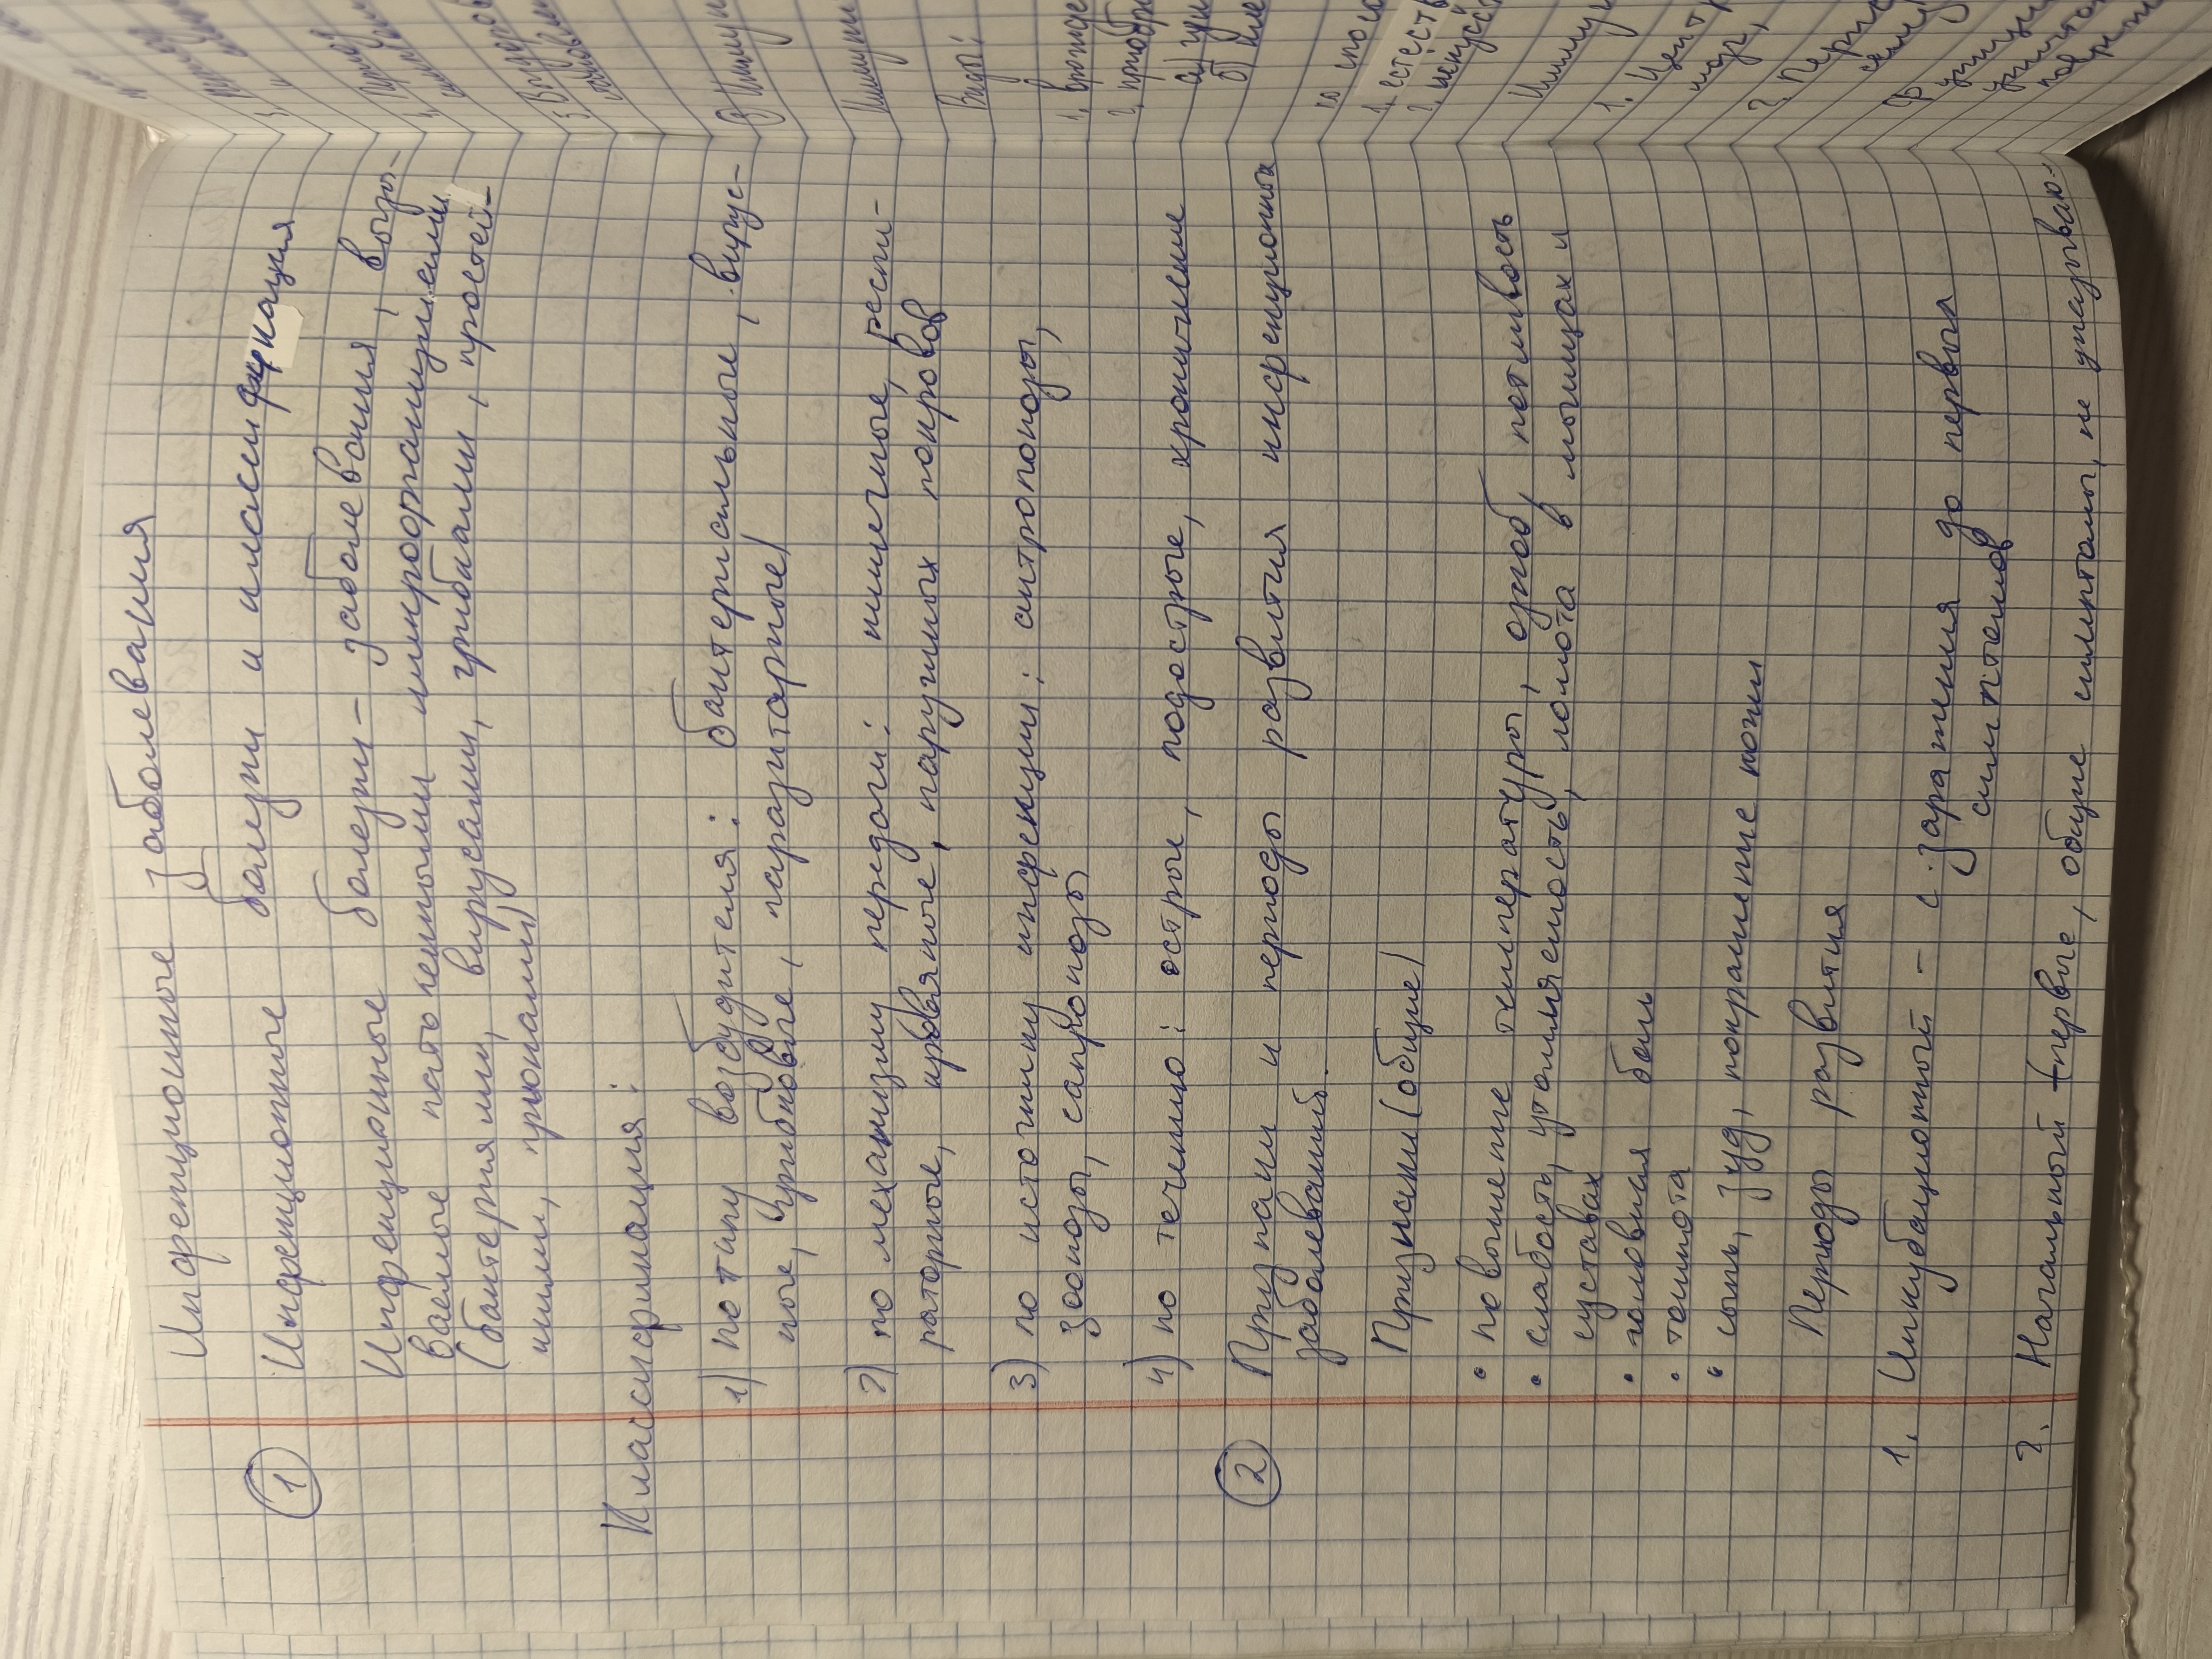 Инфекционные заболевания
1 Инфекционные болезни и классификация
Инфекционные болезни - заболевания, вызы-
ваемые патогенными микроорганизмами
(бактериями, вирусами, грибами, простей-
шими, прионами)
Классификация:
1) по типу возбудителя: бактериальные, вирус-
ные, грибковые, паразитарные)
2) по механизму передачи: кишечные, респи-
раторные, кровяные, наружных покровов
3) по источнику инфекции: антропонозы,
зоонозы, сапронозы
4) по течению: острые, подострые, хронические
2 Признаки и периоды развития инфекционных
заболеваний.
Признаки (общие)
• повышение температуры, озноб, потливость
• слабость, утомляемость, ломота в мышцах и
суставах
• головная боль
• тошнота
• сыпь, зуд, покраснение кожи
Периоды развития
1. Инкубационный - с заражения до первых
симптомов
2. Начальный (первые, общие симптомы, не указываю-
3
и
4.
5.
3) Иммуни
Иммуни
Виды:
1. врожде
2. приобр
а)
б)
по спосо
1. естеств
2. искусст
Иммун
1. Центр
мозг,
2. Пери
Функции